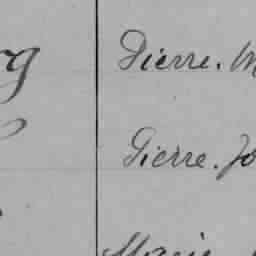 Pierre. M
Pierre. Jo
Marie